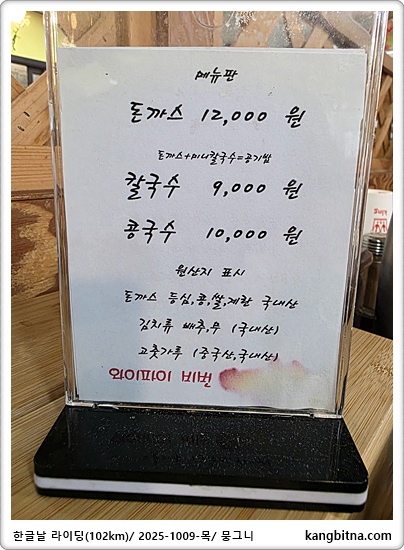 메뉴판
돈까스 12,000 원
돈까스+미니칼국수=공기밥
칼국수 9,000 원
콩국수 10,000 원
원산지 표시
돈까스 등심,콩,쌀,계란 국내산
김치류 배추,무 (국내산)
고춧가루 (중국산,국내산)
와이파이 비번
한글날 라이딩(102km)/ 2025-1009-목/ 뭉그니
kangbitna.com